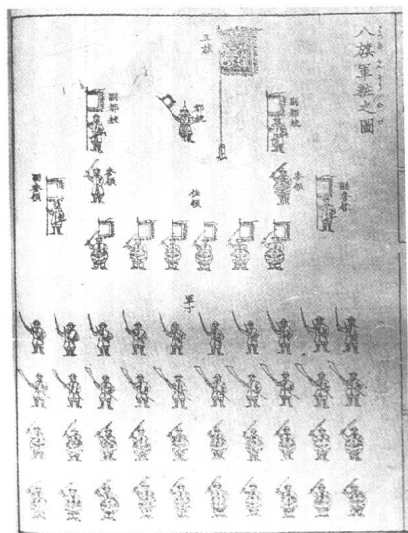 八旗軍粧之圖
五旗
副都統
都統
副都統
參領
參領
副參領
副參領
佐領
軍丁